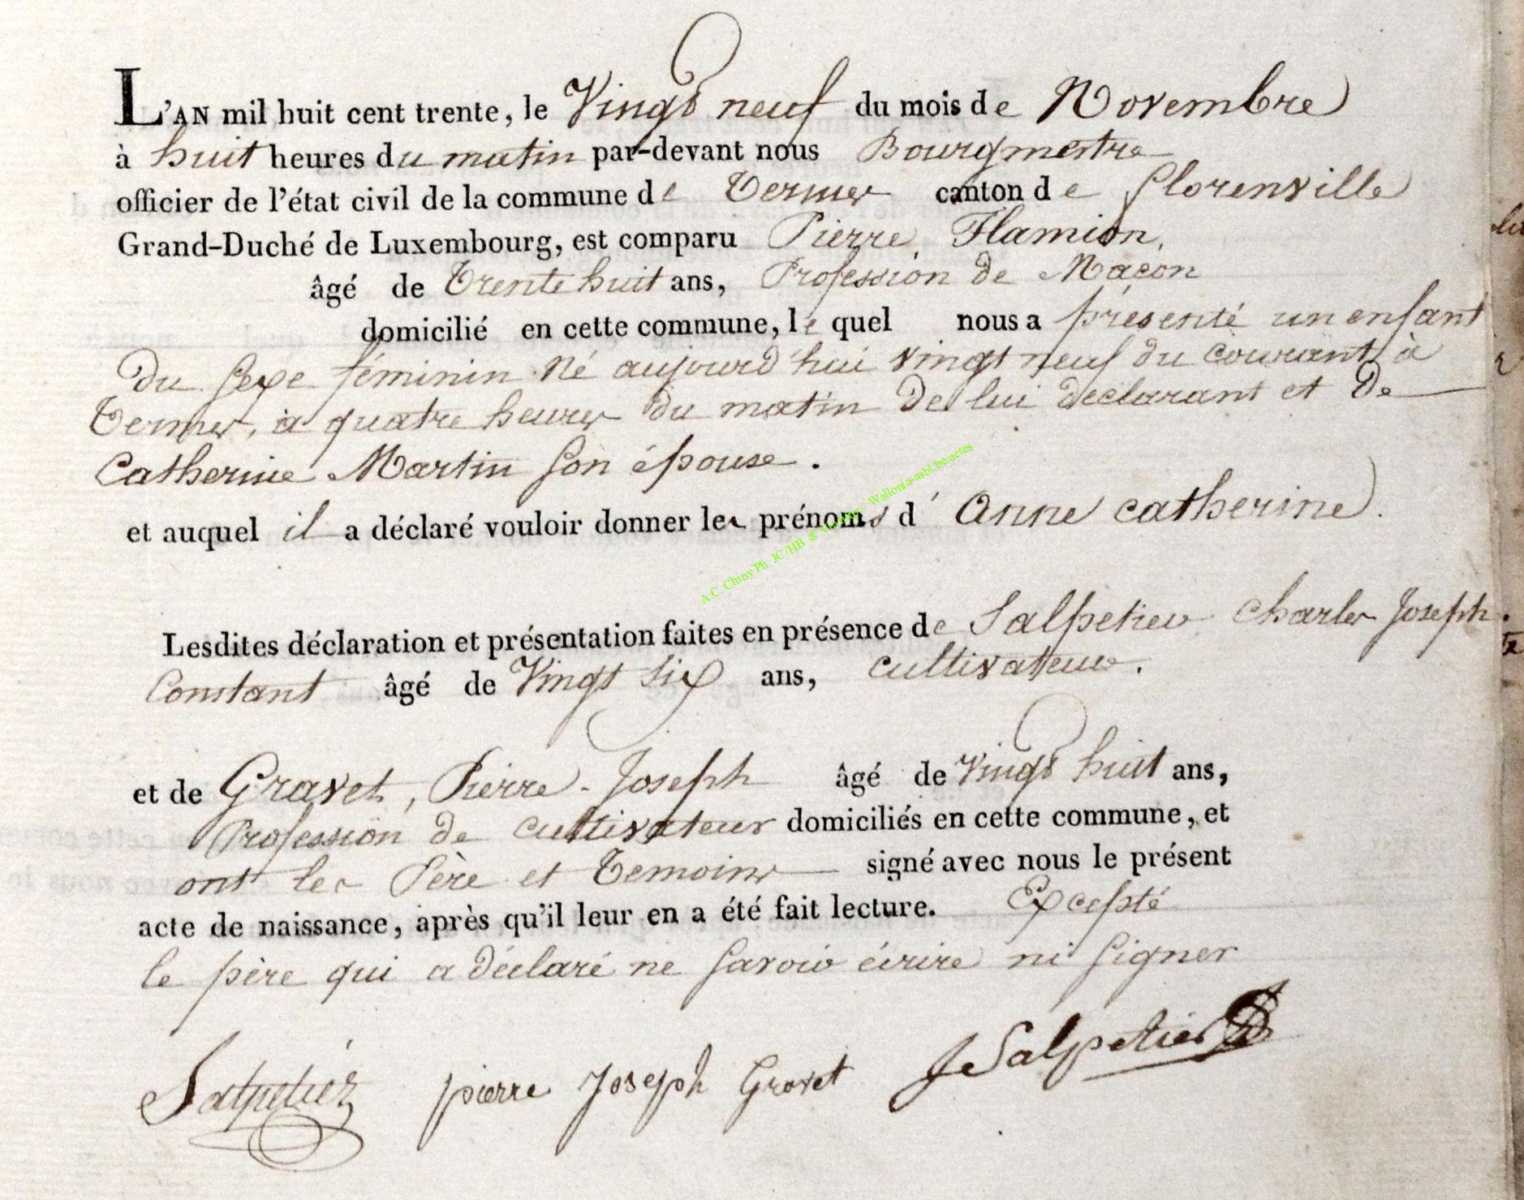 L'AN mil huit cent trente, le Vingt neuf du mois de Novembre
à huit heures du matin par-devant nous Bourgmestre
officier de l'état civil de la commune de Termes canton de florenville
Grand-Duché de Luxembourg, est comparu Pierre Flamion,
âgé de Trente huit ans, Profession de Maçon
domicilié en cette commune, lequel nous a présenté un enfant
du sexe féminin né aujourd'hui vingt neuf du courant à
Termes, à quatre heures du matin De lui declarant et De
Catherine Martin son épouse.
et auquel il a déclaré vouloir donner les prénoms d' Anne catherine.
A.C. Chiny Ph. JC/HB
Lesdites déclaration et présentation faites en présence de Salpetier Charles Joseph
Constant âgé de Vingt six ans, cultivateur.
et de Gravet, Pierre-Joseph âgé de Vingt huit ans,
Profession de cultivateur domiciliés en cette commune, et
ont les Père et Temoins signé avec nous le présent
acte de naissance, après qu'il leur en a été fait lecture. Excepté
le père qui a déclaré ne savoir écrire ni signer
Salpetier pierre Joseph Gravet J Salpetier